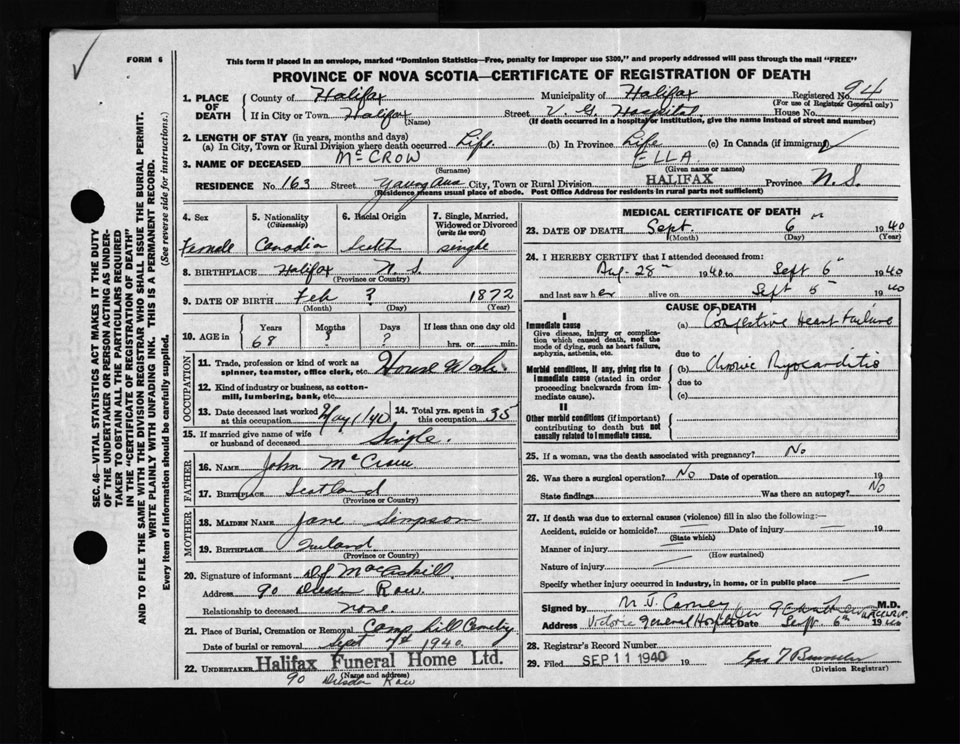 FORM 6
This form if placed in an envelope, marked "Dominion Statistics—Free, penalty for improper use $300," and properly addressed will pass through the mail "FREE"
PROVINCE OF NOVA SCOTIA—CERTIFICATE OF REGISTRATION OF DEATH
SEC. 46—VITAL STATISTICS ACT MAKES IT THE DUTY
OF THE UNDERTAKER OR PERSON ACTING AS UNDER-
TAKER TO OBTAIN ALL THE PARTICULARS REQUIRED
IN THE "CERTIFICATE OF REGISTRATION OF DEATH"
AND TO FILE THE SAME WITH THE DIVISION REGISTRAR WHO SHALL ISSUE THE BURIAL PERMIT.
WRITE PLAINLY WITH UNFADING INK. THIS IS A PERMANENT RECORD.
Every item of information should be carefully supplied. (See reverse side for instructions.)
1. PLACE OF DEATH County of Halifax Municipality of Halifax Registered No. 94
(For use of Registrar General only)
If in City or Town Halifax Street V. G. Hospital House No.
(Name) (If death occurred in a hospital or institution, give the name instead of street and number)
2. LENGTH OF STAY (in years, months and days)
(a) In City, Town or Rural Division where death occurred Life. (b) In Province Life (c) In Canada (if immigrant)
3. NAME OF DECEASED McCROW ELLA
(Surname) (Given name or names)
RESIDENCE No. 163 Street Young Ave City, Town or Rural Division HALIFAX Province N.S.
(Residence means usual place of abode. Post Office Address for residents in rural parts not sufficient)
4. Sex Female
5. Nationality (Citizenship) Canadian
6. Racial Origin Scotch
7. Single, Married, Widowed or Divorced (write the word) single
8. BIRTHPLACE Halifax N.S.
(Province or Country)
9. DATE OF BIRTH Feb ? 1872
(Month) (Day) (Year)
10. AGE in Years Months Days If less than one day old
68 ? ? hrs. or min.
OCCUPATION
11. Trade, profession or kind of work as spinner, teamster, office clerk, etc. House Work
12. Kind of industry or business, as cotton-mill, lumbering, bank, etc.
13. Date deceased last worked at this occupation May 1/40 14. Total yrs. spent in this occupation 35
15. If married give name of wife or husband of deceased Single.
FATHER
16. NAME John McCrow
17. BIRTHPLACE Scotland
(Province or Country)
MOTHER
18. MAIDEN NAME Jane Simpson
19. BIRTHPLACE Ireland.
(Province or Country)
20. Signature of informant MacAskill.
Address 90 Dresden Row.
Relationship to deceased none.
21. Place of Burial, Cremation or Removal Camp Hill Cemetery
Date of burial or removal Sept 1940.
22. UNDERTAKER Halifax Funeral Home Ltd.
(Name and address)
90 Dresden Row
MEDICAL CERTIFICATE OF DEATH
23. DATE OF DEATH Sept. 6 1940
(Month) (Day) (Year)
24. I HEREBY CERTIFY that I attended deceased from:
Aug-28th 1940 to Sept 6th 1940
and last saw her alive on Sept 1940
CAUSE OF DEATH
I
Immediate cause (a) Congestive Heart Failure
Give disease, injury or complication which caused death, not the mode of dying, such as heart failure, asphyxia, asthenia, etc.
due to
Morbid conditions, if any, giving rise to immediate cause (stated in order proceeding backwards from immediate cause). (b) Chronic Myocarditis
due to
(c)
II
Other morbid conditions (if important) contributing to death but not causally related to immediate cause.
25. If a woman, was the death associated with pregnancy? No
26. Was there a surgical operation? No Date of operation 19
State findings Was there an autopsy? No
27. If death was due to external causes (violence) fill in also the following:—
Accident, suicide or homicide? Date of injury 19
(State which)
Manner of injury
(How sustained)
Nature of injury
Specify whether injury occurred in industry, in home, or in public place
Signed by M J Carney M.D.
Address Victoria General Hospital Date Sept 6th 1940
28. Registrar's Record Number
29. Filed SEP 11 1940 19
(Division Registrar)